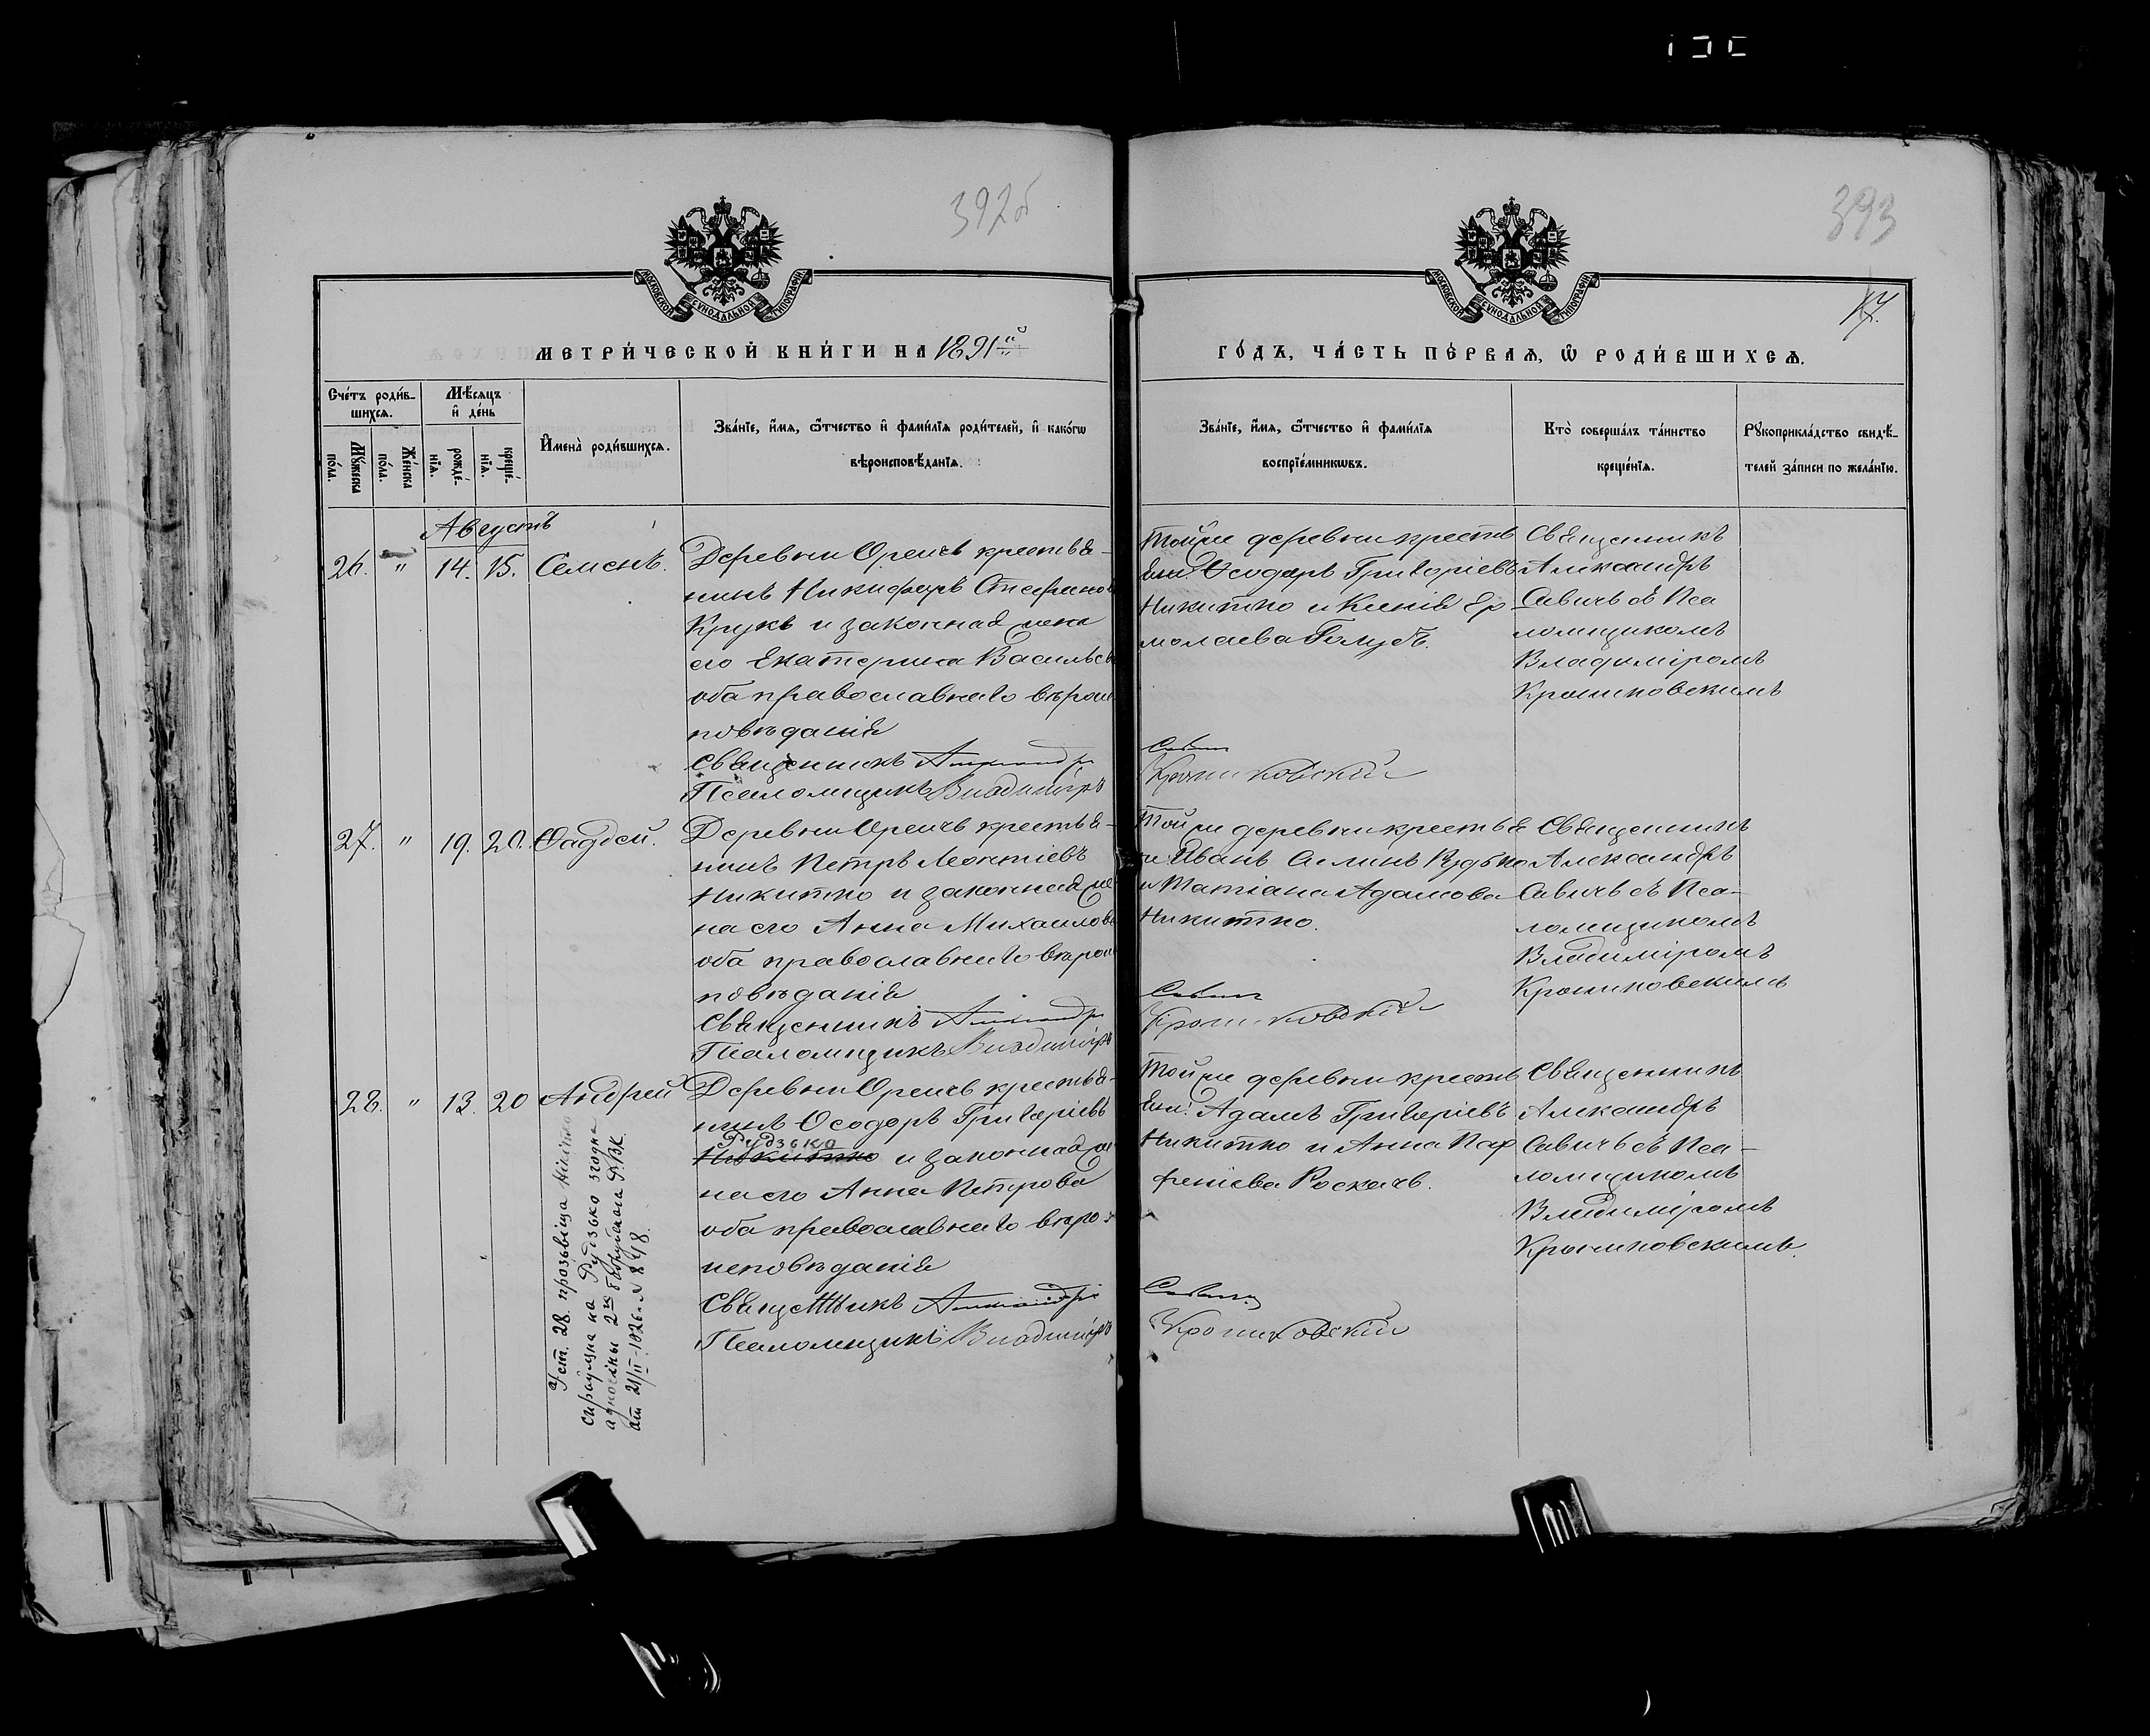 392об
393
МОСКОВСКОЙ СѴНОДАЛЬНОЙ ТИПОГРАФІИ
МОСКОВСКОЙ СѴНОДАЛЬНОЙ ТИПОГРАФІИ
17.
МЕТРИ́ЧЕСКОЙ КНИ́ГИ НА 1891й
ГО́ДЪ, ЧА́СТЬ ПЕ́РВАѦ, Ѡ҆ РОДИ́ВШИХСѦ.
Сче́тъ роди́в-
шихсѧ.
Мꙋ́жеска по́ла.
Же́нска по́ла.
Мѣ́сѧцъ
и҆ де́нь
рожде́-
нїѧ.
креще́-
нїѧ.
И҆мена̀ роди́вшихсѧ.
Зва́нїе, и҆́мѧ, ѻ҆́тчество и҆ фами́лїѧ роди́телей, и҆ како́гѡ
вѣроисповѣ́данїѧ.
Зва́нїе, и҆́мѧ, ѻ҆́тчество и҆ фами́лїѧ
воспрїе́мникѡвъ.
Кто̀ соверша́лъ та́инство
креще́нїѧ.
Рꙋкоприкла́дство свидѣ́-
телей за́писи по жела́нїю.
Августъ
26. " 14. 15. Семенъ.
Деревни Оречь крестья-
нинъ Никифоръ Стефановъ
Крукъ и законная жена
его Екатерина Васильев
оба православнаго вѣроис
повѣданія
Священникъ Александръ
Псаломщикъ Владиміръ
Той же деревни крестья
Ѳеодоръ Григоріевъ
Никитко и Ксенія Ер
молаева Голубъ.
Савичъ
Крошковскій
Священникъ
Александръ
Савичъ съ Пса
ломщикомъ
Владиміромъ
Крошковскимъ
27. " 19. 20. Фадей.
Деревни Оречь крестья-
нинъ Петръ Леонтіевъ
Никитко и законная же
на его Анна Михаилов
оба православнаго вѣрои
повѣданія
Священникъ Александръ
Псаломщикъ Владиміръ
Той же деревни крестья
не Иванъ Рудько
и Матіана Адамова
Никитко.
Савичъ
Крошковскій
Священникъ
Александръ
Савичъ съ Пса-
ломщикомъ
Владиміромъ
Крошковскимъ
28. " 13. 20 Андрей
Деревни Оречь крестья-
нинъ Ѳеодоръ Григоріевъ
Рудзько
Никитко и законная же
на его Анна Петрова
оба православнаго вѣро-
исповѣданія
Священникъ Александръ
Псаломщикъ Владиміръ
Той же деревни крестья
Адамъ Григоріевъ
Никитко и Анна Пар
феніева Роскачъ.
Савичъ
Крошковскій
Священникъ
Александръ
Савичъ съ Пса-
ломщикомъ
Владиміромъ
Крошковскимъ.
У ст. 28. прозьвіща Нікітко
спраўлена на Рудзько згодна
адносіны 2го Бабруйскага Р.В.К.
ат 21/II-1926 г. № 848.